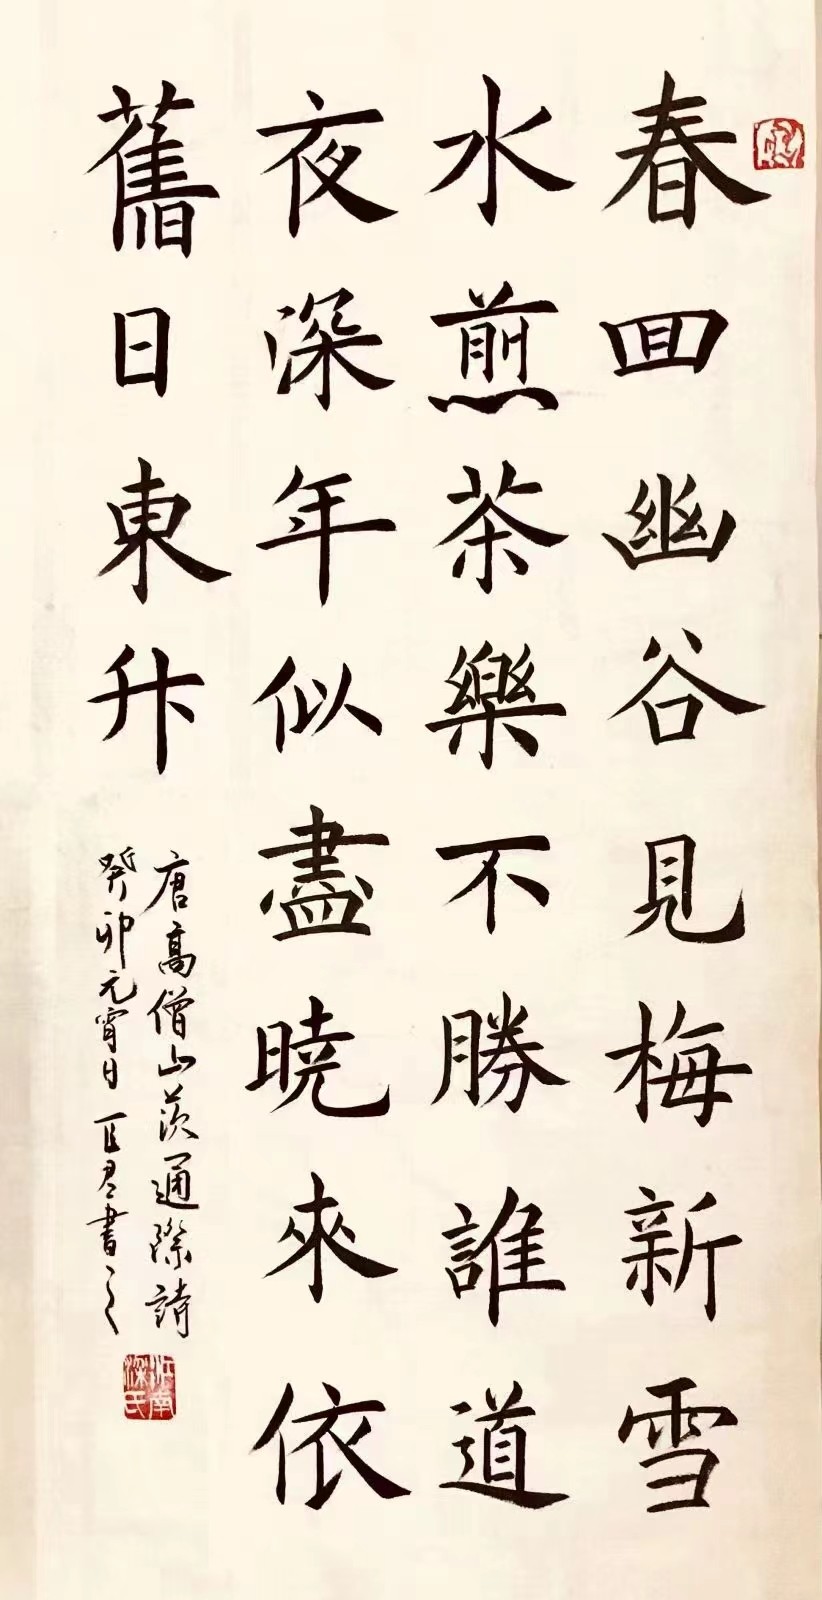 春回幽谷見梅新雪
水煎茶樂不勝誰道
夜深年似盡曉來依
舊日東升
唐高僧山茨通際詩
癸卯元宵日 书之